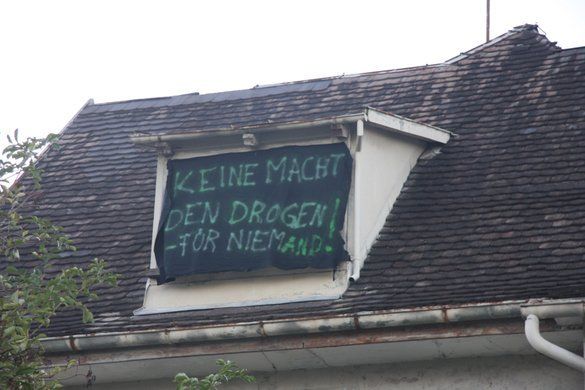 KEINE MACHT
DEN DROGEN!
-FÖR NIEMAND!